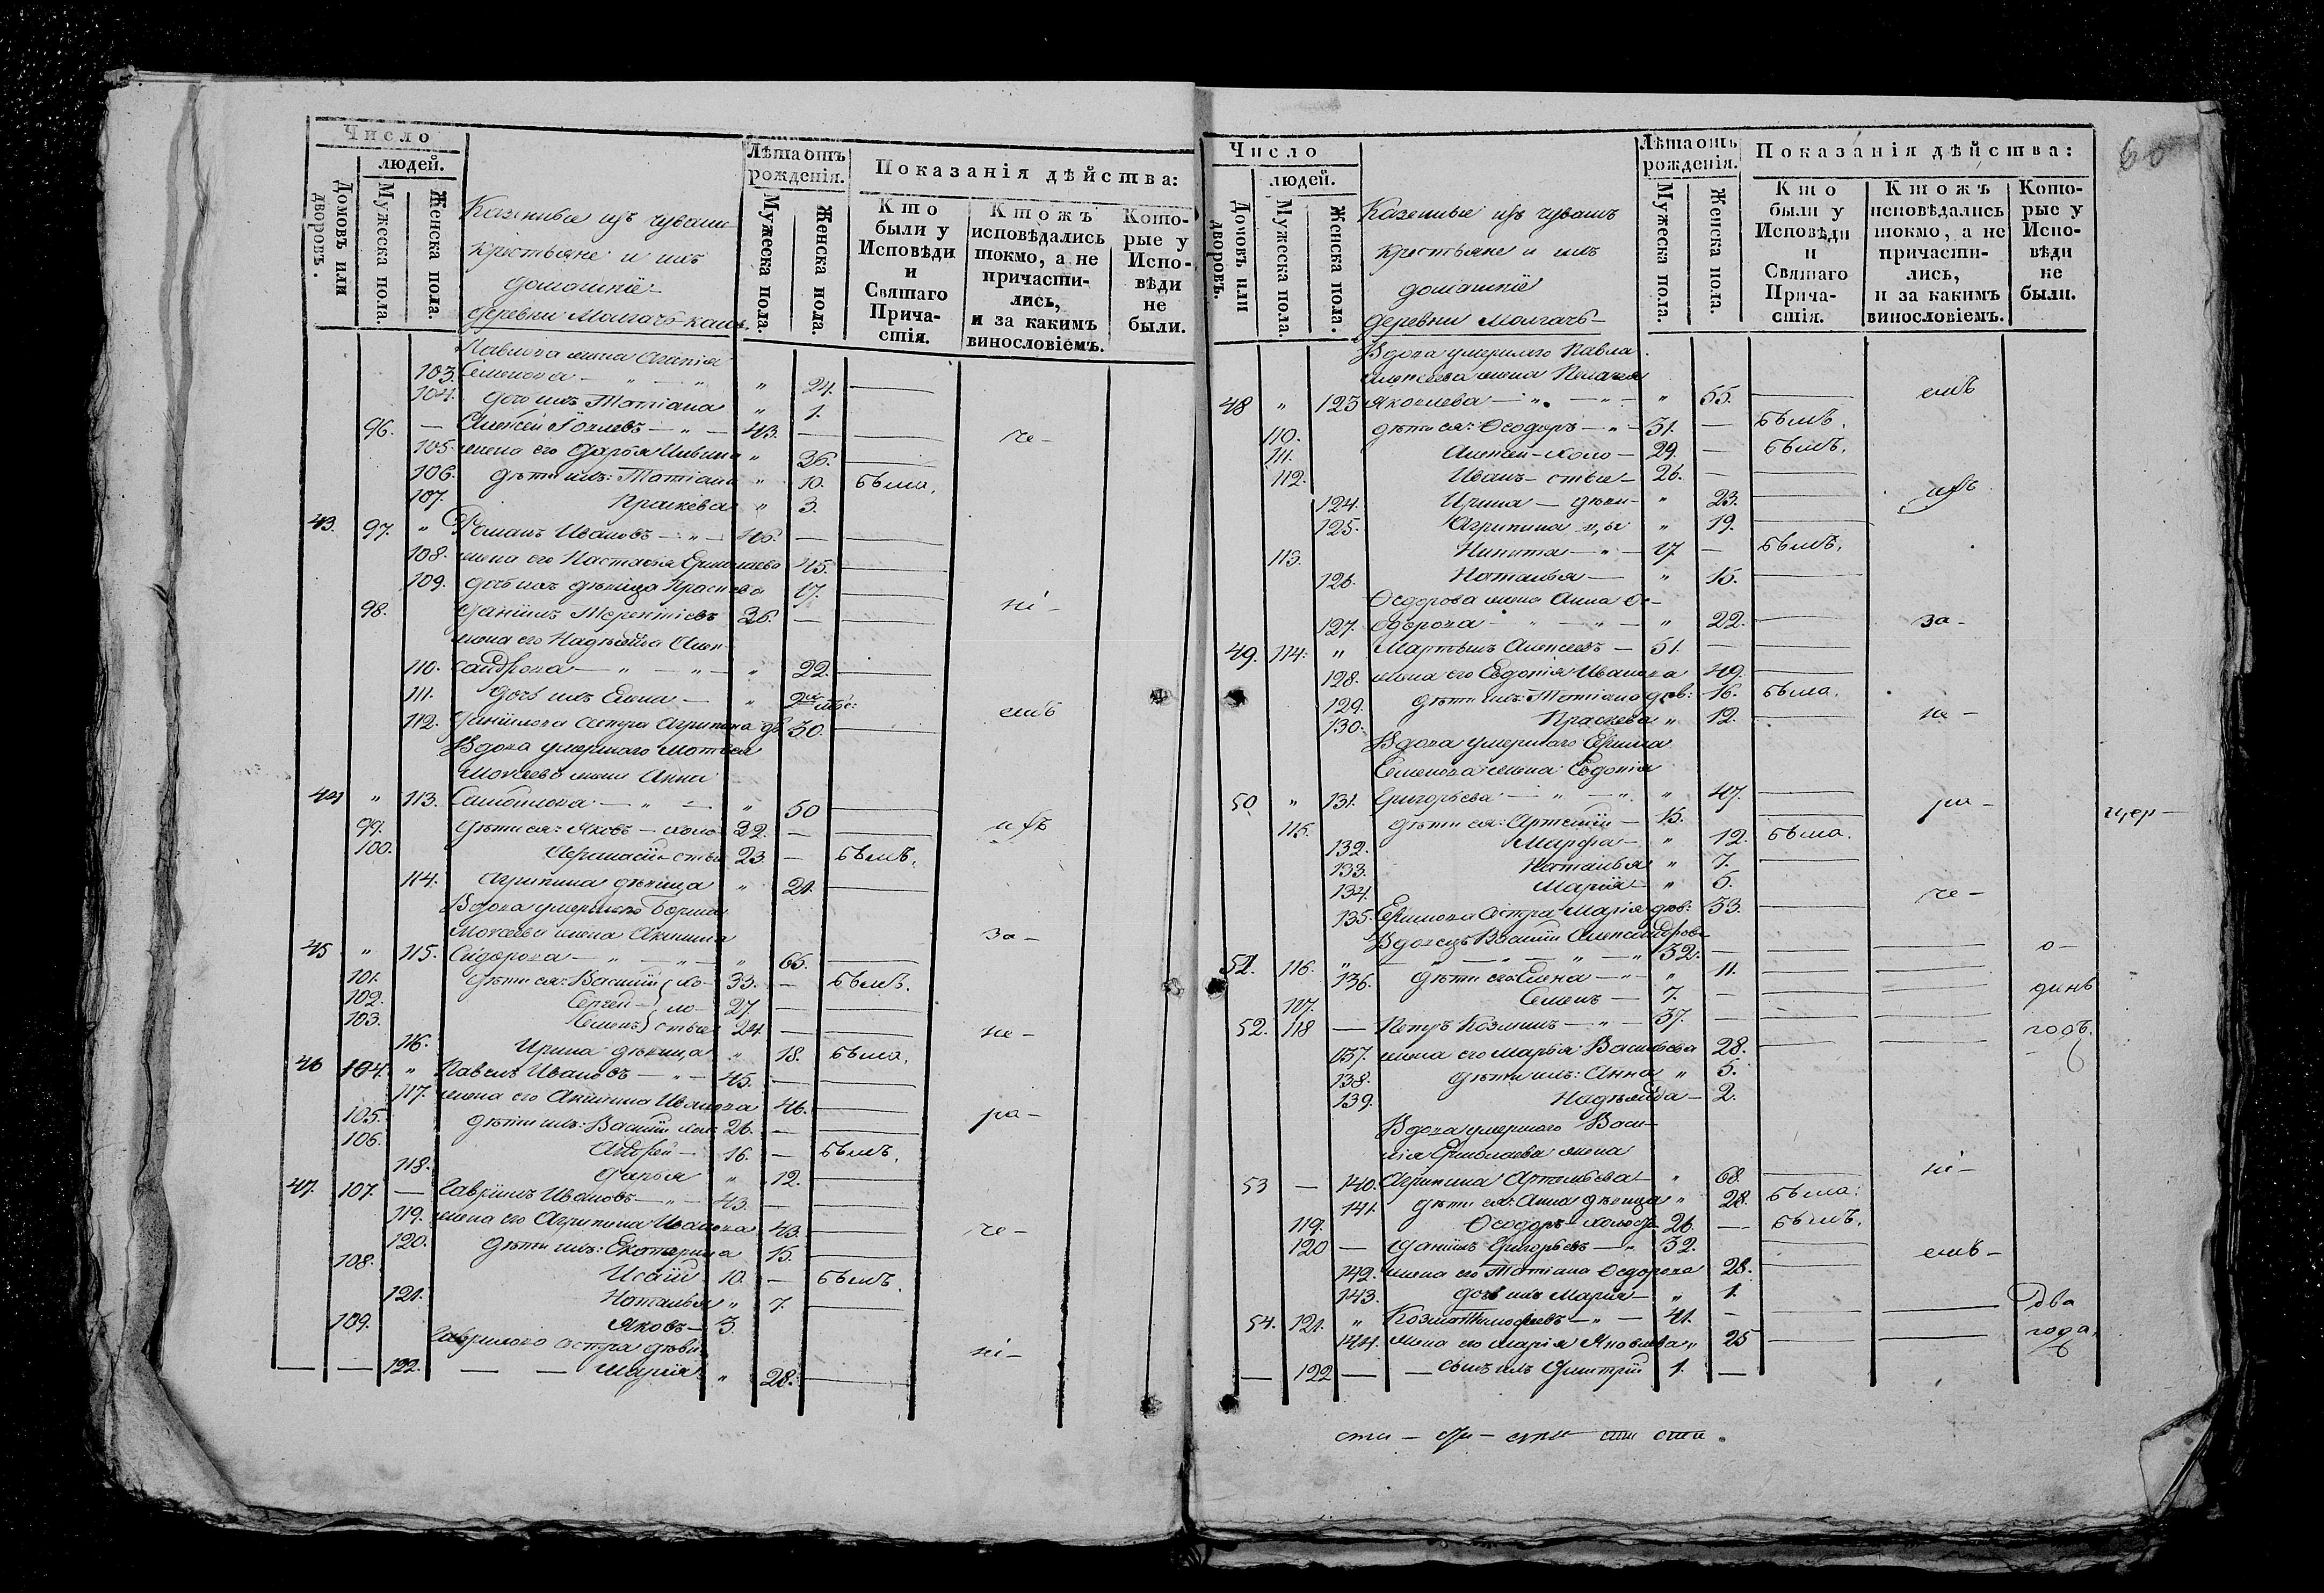 Число
людей.
Домовъ или дворовъ.
Мужеска пола.
Женска пола.
Казенные изъ чувашъ
крестьяне и ихъ
домашніе
деревни
Лѣта отъ рожденія.
Мужеска пола.
Женска пола.
Показанія дѣйства:
Кто были у Исповѣди и Святаго Прича-стія.
Ктожъ исповѣдались токмо, а не причасти-лись, и за какимъ винословіемъ.
Кото-рые у Испо-вѣди не были.
Павлова жена
103. Семенова — „ — „ „ 24. —
104. дочь ихъ Татіана „ 1.
96. — Алексѣй — „ — 43. — — че-
105. жена его Дарья „ 36. —
106. дѣти ихъ: Татіана „ 10. была.
107. Праскева „ 3.
43. 97. „ Романъ Ивановъ — „ — 46. — —
108. жена его Настасья Ермолаева 45. —
109. дочь ихъ дѣвица Праскева 17. —
98. Даніилъ Терентіевъ 36. — — ні-
жена его Надежда Алек-
110. сандрова — „ — „ — „ 22. —
111. дочь ихъ Елена — „ 2
112. Даніилова сестра Агрипина дѣ 30. — емъ
Вдова умершаго Матвея
Моисеева жена Анна
44 „ 113. Самойлова — „ — „ 50 —
99. дѣти ея: Яковъ — холо 32. — — изъ
100. Афанасій — стые 23. — былъ.
114. Агрипина дѣвица „ 21. —
Вдова умершаго Бориса
Моисеева жена Акилина за-
45 „ 115. Сидорова — „ — „ — „ 65. —
101. дѣти ея: Василій хо- 33. — былъ.
102. Сергей ло- 27. — —
103. Семенъ стые 24. — — не-
116. Ирина дѣвица „ 18. была.
46 104. „ Павелъ Ивановъ — „ — 45. — —
117. жена его Акилина Иванова 46. — ра-
105. дѣти ихъ: Василій хол: 26. — —
106. Андрей — 16. — былъ.
118. Дарья „ 12. —
47. 107. — Гавріилъ Ивановъ — „ — 43. — —
119. жена его Агрипина Иванова 43. — че-
120. дѣти ихъ: Екатерина 15. —
108. Исаій 10. — былъ.
121. Наталья „ 7. —
109. Яковъ — 3.
Гаврилова сестра дѣви- ні-
— — 122. — — Марія „ 28. —
60
Число
людей.
Домовъ или дворовъ.
Мужеска пола.
Женска пола.
Казенные изъ чувашъ
крестьяне и ихъ
домашніе
деревни
Лѣта отъ рожденія.
Мужеска пола.
Женска пола.
Показанія дѣйства:
Кто были у Исповѣди и Святаго Прича-стія.
Ктожъ исповѣдались токмо, а не причасти-лись, и за какимъ винословіемъ.
Кото-рые у Испо-вѣди не были.
Вдова умершаго Павла
Алексеева жена Пелагея емъ
48 „ 123 Яковлева — „ — „ — „ 55. —
110. дѣти ея: Ѳеодоръ — „ — 31. — былъ.
111. Алексей — холо — 29. — былъ.
112. Иванъ — стые — 26. — —
124. Ирина — дѣви- „ 23. — изъ
125. Агрипина — цы „ 19. —
113. Никита — „ — 17 — былъ.
126. Наталья — „ 15. —
Ѳедорова жена Анна Ѳе-
127. одорова — „ — „ — „ 22. — за-
49. 114. „ Мартынъ Алексеевъ — 51. — —
128. жена его Евдокія Иванова 49. —
129. дѣти ихъ: Татіана дѣв: 16. была.
130. Праскева „ 12. — не-
Вдова умершаго Ефима
Семенова жена Евдокія
50 „ 131. Григорьева — „ — „ „ 47. — ра- цер-
115. дѣти ея: Артемій — 15. —
132. Марфа — „ 12. была.
133. Наталья „ 7. —
134. Марія — „ 5. че-
135. Ефимова сестра Марія дѣв: 33. —
Вдовецъ Василій Александров-
51. 116. „ — „ — „ — „ 32. — — — о-
136. дѣти его Елена — „ 11. — —
117. Семенъ — 7. — — — динъ
52. 118 — Петръ Козминъ — „ — 37. — — — годъ.
137. жена его Марья Васильева 28. — —
138. дѣти ихъ: Анна „ 5.
139. Надежда — 2.
Вдова умершаго Васи-
лія Ермолаева жена
53 — 140. Агрипина Артемьева „ 68. — ні-
141. дѣти ея: Анна дѣвица „ 28. была:
119. Ѳеодоръ — холос 26. — былъ.
120 — Даніилъ Григорьевъ — „ 32. — емъ-
142. жена его Татіана Ѳедорова 28. —
143. дочь ихъ Марія — „ 1.
54. 121. „ Козма Тимофеевъ — „ — 41. — — — два
144. жена его Марія Яковлева „ 25 — — года.
— 122 — — сынъ ихъ Димитрій 1. —